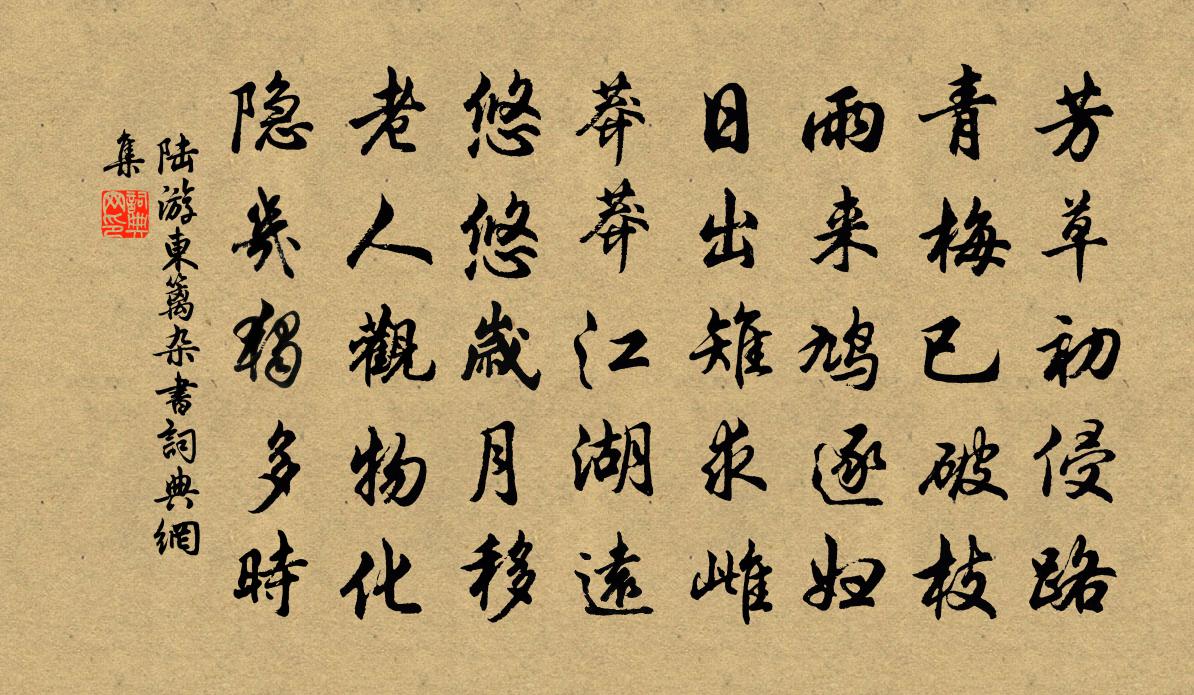 芳草初侵路
青梅已破枝
雨来鸠逐妇
日出雉求雌
莽莽江湖遠
悠悠歲月移
老人觀物化
隐几独多時
陆游東篱杂書詞典網
集
詞典
网印